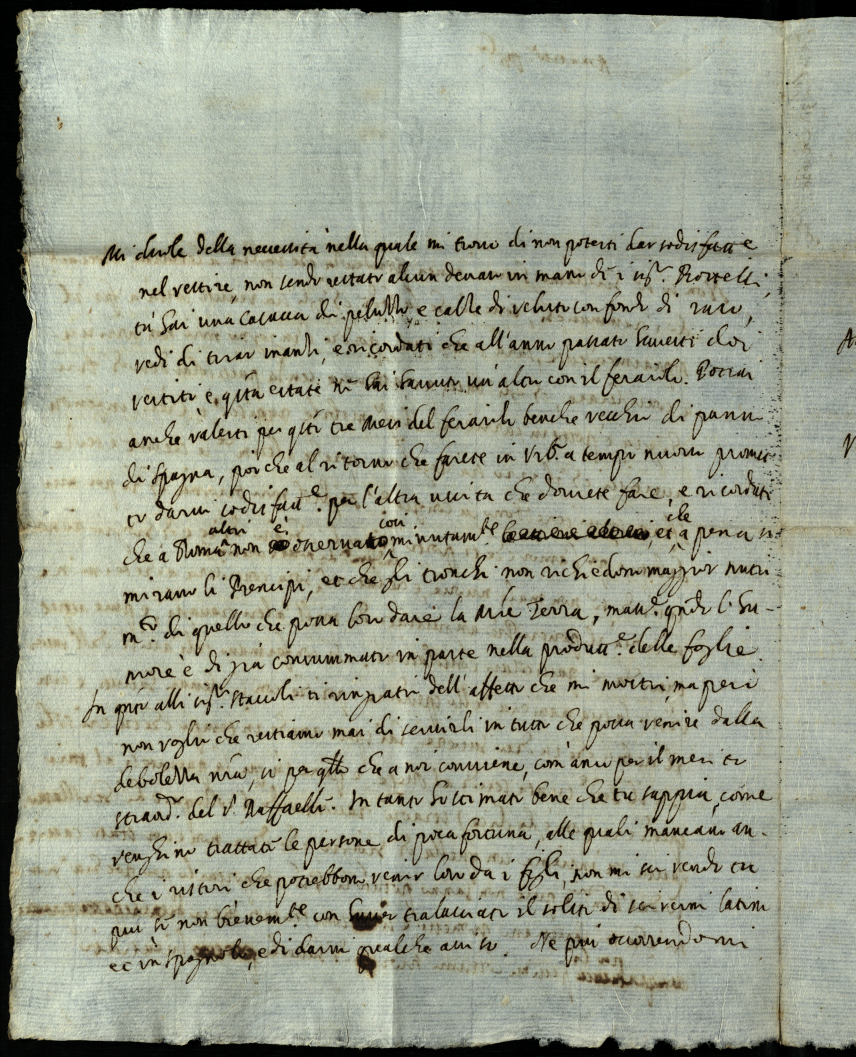 Mi duole della necessità nella quale mi trovo di non poterti dar sodisfatt.e
nel vestire, non sendo restato alcun denaro in mano de i sig.ri Rostelli,
tu hai una casacca di peluzzo, e calze di veluto con fondo di raso,
vedi di tirar inanti, e ricordati che all'anno passato havesti doi
vestiti e q.sta estate n' hai havuto un altro con il feraiolo. Potrai
anche valerti per q.sti tre mesi del feraiolo benche vecchio di panno
di Spagna, poiche al ritorno che farete in Urb.o a tempo nuovo promet
to darvi sodisfatt.e per l'altra uscita che dovrete fare, e ricordati
che a Roma altri non è osservato così minutam.te, et che a pena si
mirano li Prencipi, et che gli tronchi non richiedono maggior nutri
m.to di quello che possa loro dare la Mre Terra, mass.e q.ndo l'hu-
more è di già consummato in parte nella produtt.e delle foglie.
In q.nto alli sig.ri Staccoli ti ringratio dell'affetto che mi mostri, ma però
non voglio che restiamo mai di servirli in tutto che possa venire dalla
debolezza n.ra, si per q.llo che a noi conviene, com'anco per il merito
straord.o del s.r Raffaelle. In tanto ho stimato bene che tu sappia, come
venghino trattate le persone di poca fortuna, alle quali mancano an-
che i ristori che potrebbono venir loro da i figli, non mi scrivendo tu
più se non brevem.te con haver tralasciato il solito di scrivermi latino
et in spagnolo, e di darmi qualche aviso. Ne più occorrendomi